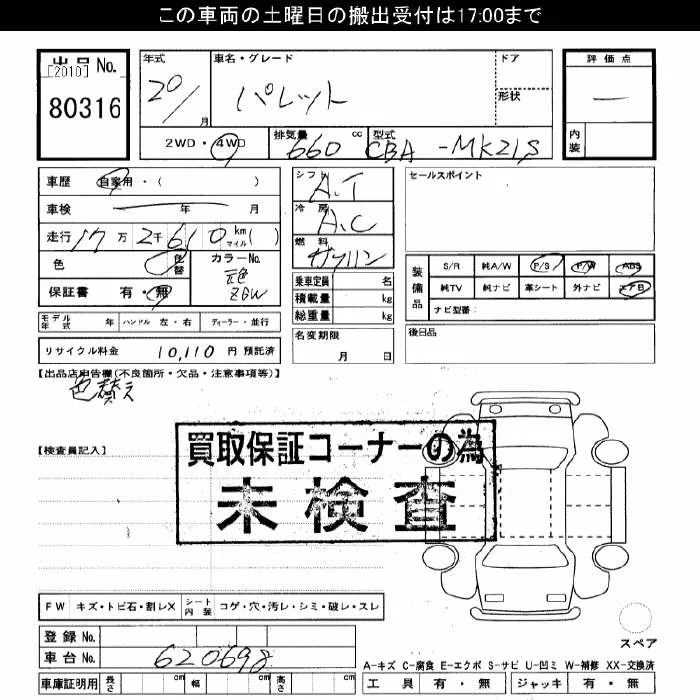 この車両の土曜日の搬出受付は17:00まで
出品 No.
[2010]
80316
年式
20/
月
車名・グレード
パレット
ドア
形状
評価点
―
内装
2WD・4WD
排気量
660 cc
型式
CBA-MK21S
車歴 自家用・( )
車検 年 月
走行 17万 2千 610 km マイル ( )
色 色替
カラーNo.
元色
ZGW
保証書 有・無
モデル年式 年 ハンドル 左・右 ディーラー・並行
リサイクル料金 10,110 円 預託済
シフト
A.T
冷房
A.C
燃料
ガソリン
乗車定員 名
積載量 kg
総重量 kg
名変期限
月 日
セールスポイント
装備品
S/R 純A/W P/S P/W ABS
純TV 純ナビ 革シート 外ナビ エアB
ナビ型番:
後日品
【出品店申告欄(不良箇所・欠品・注意事項等)】
色替え
【検査員記入】
買取保証コーナーの為
未検査
FW キズ・トビ石・割レX シート内装 コゲ・穴・汚レ・シミ・破レ・スレ
登録 No.
車台 No. 620698
車庫証明用 長さ cm 幅 cm 高さ cm
スペア
A-キズ C-腐食 E-エクボ S-サビ U-凹ミ W-補修 XX-交換済
工具 有・無 ジャッキ 有・無